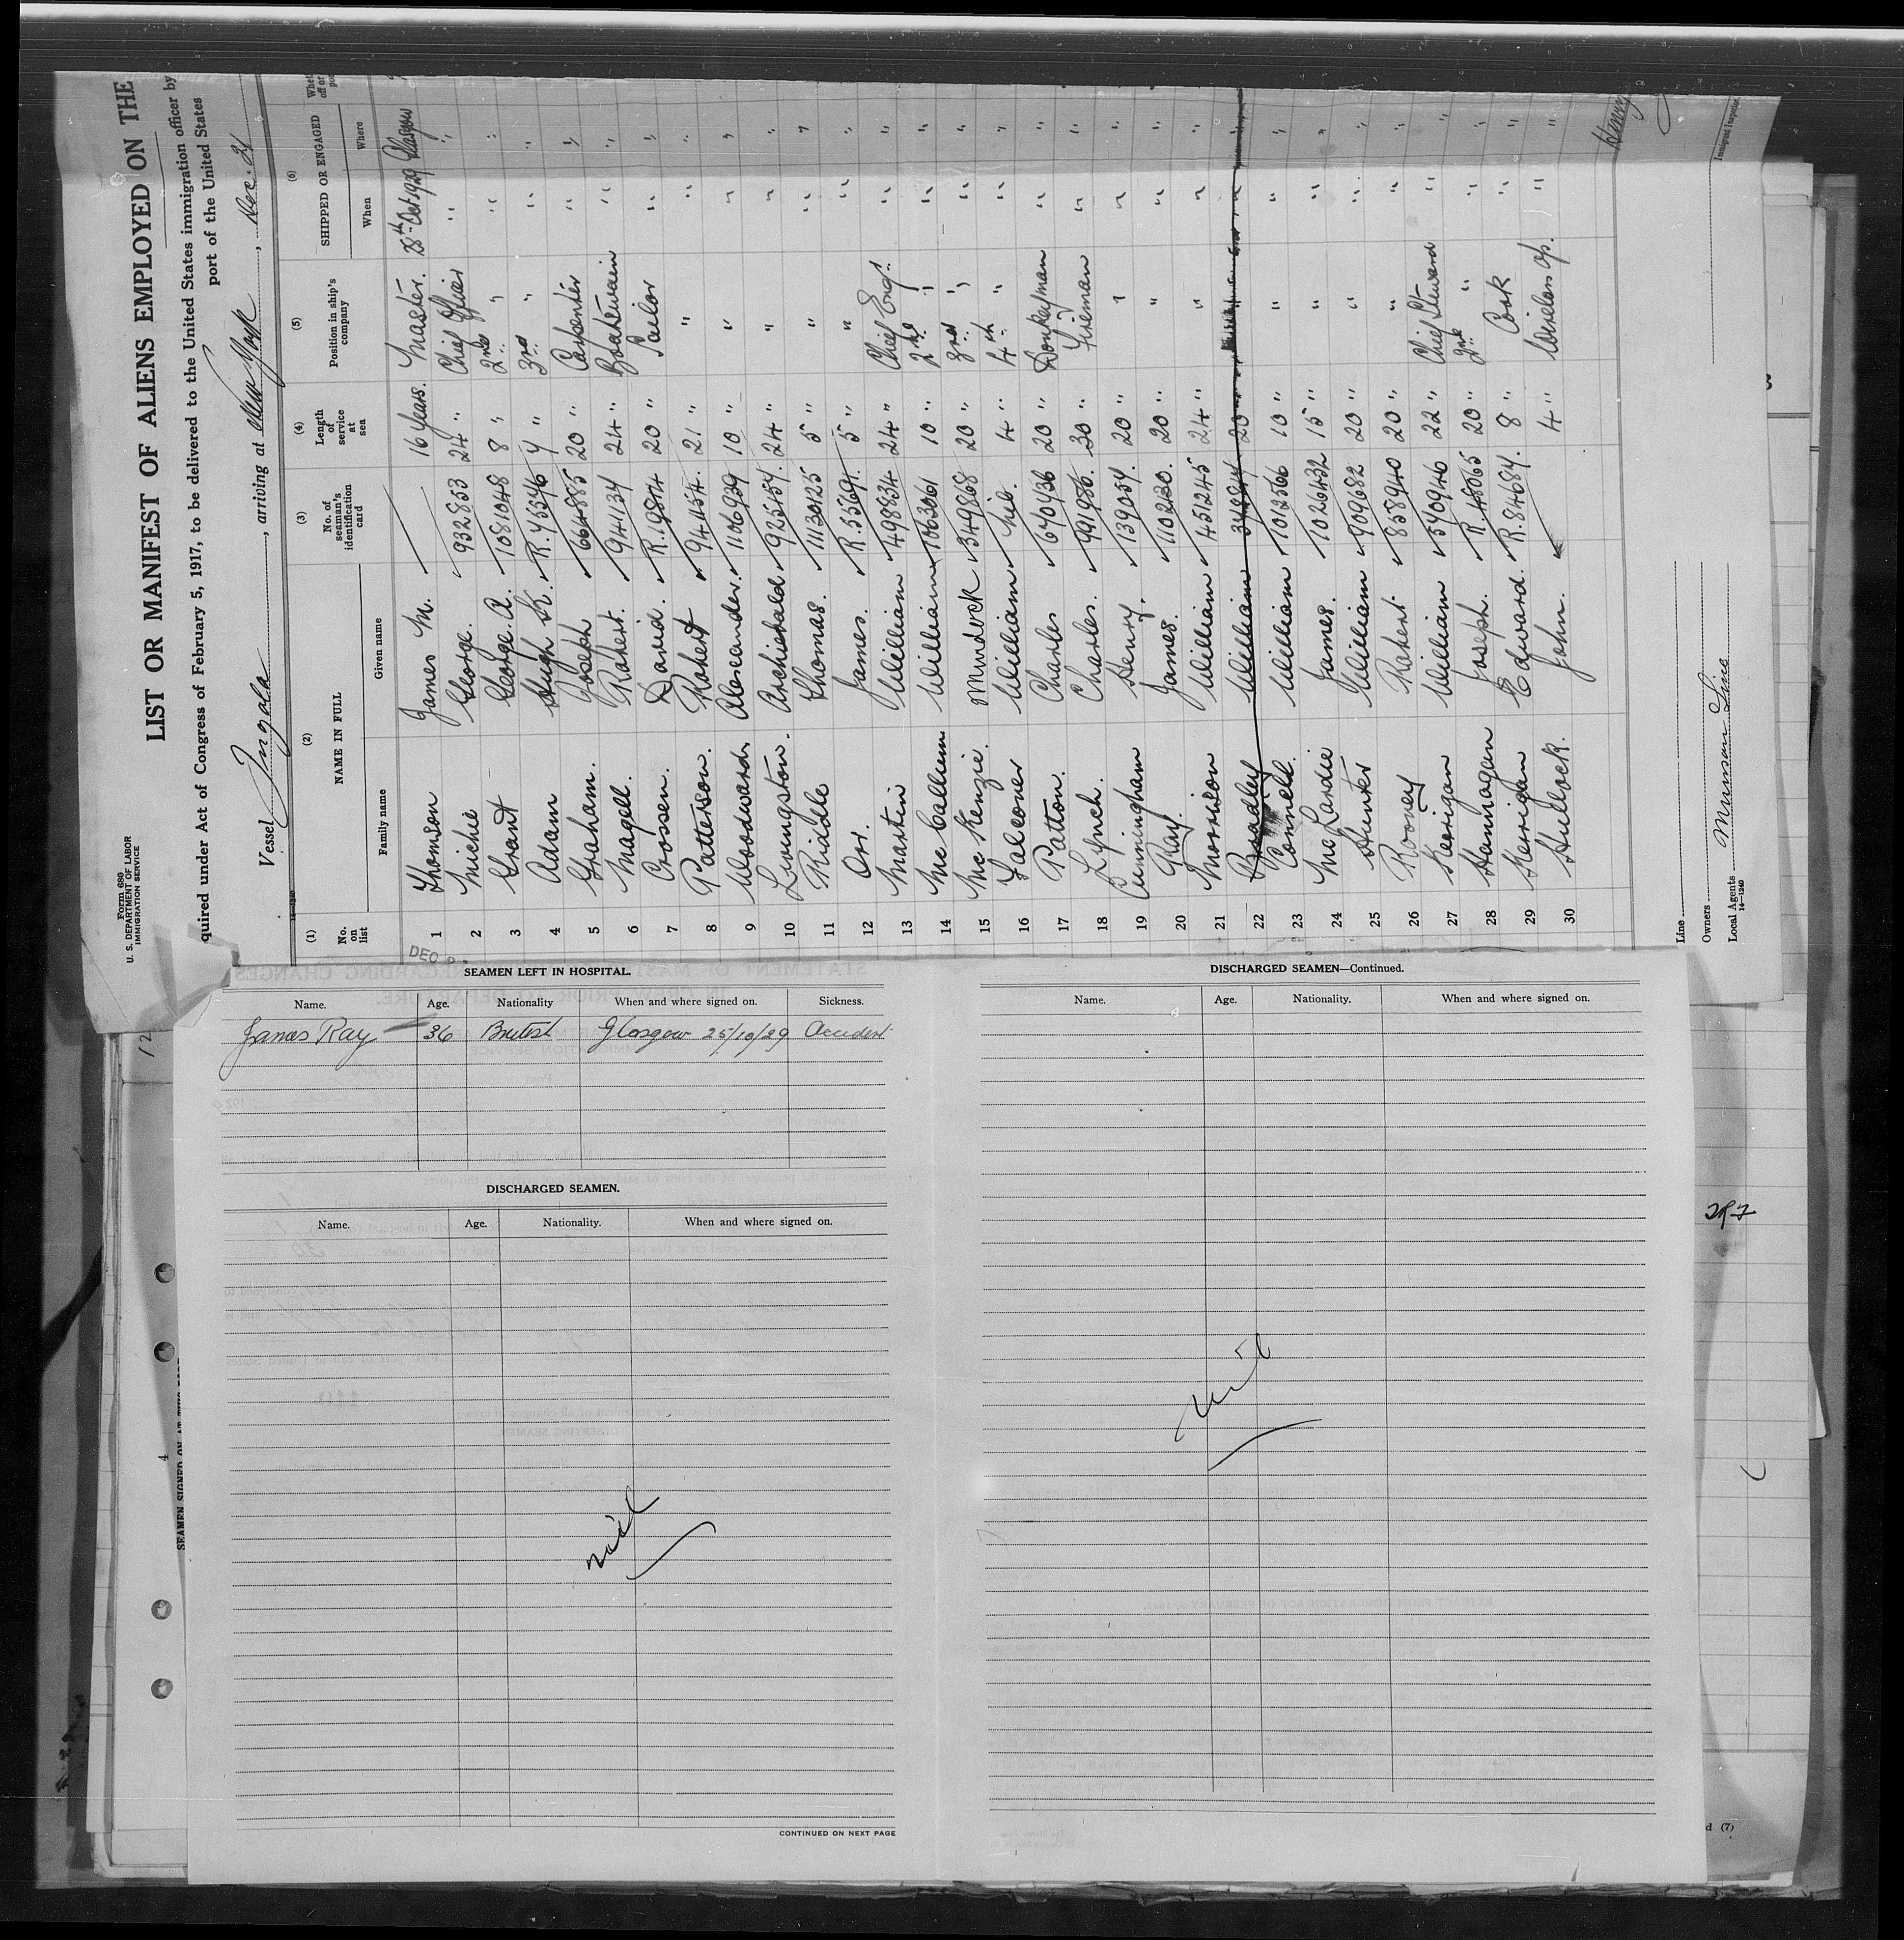 Form 680
U. S. DEPARTMENT OF LABOR
IMMIGRATION SERVICE
LIST OR MANIFEST OF ALIENS EMPLOYED ON THE
quired under Act of Congress of February 5, 1917, to be delivered to the United States immigration officer by
port of the United States
Vessel Ingola, arriving at New York, Dec. 21
14—1240
(1) (2) (3) (4) (5) (6)
No. on list NAME IN FULL No. of seaman's identification card Length of service at sea Position in ship's company SHIPPED OR ENGAGED
Family name Given name When Where
1 Thomson James M. 16 years. Master. 25th Oct. 1929 Glasgow
2 Michie George. 932853 24 " Chief Officer " "
3 Grant George. A. 1081048 8 " 2nd " " "
4 Adam Hugh K. R. 45346 4 " 3rd " " "
5 Graham. Joseph 664885 20 " Carpenter " "
6 Magell. Robert. 941134 24 " Boatswain " "
7 Crossen. David. R. 9814 20 " Sailor " "
8 Patterson. Robert 94454. 21 " " " "
9 Woodward. Alexander. 1106939 10 " " " "
10 Livingston. Archibald 925454. 24 " " " "
11 Riddle Thomas. 11130125 5 " " " "
12 Orr. James. R. 55691. 5 " " " "
13 Martin William 498834 24 " Chief Eng. " "
14 McCallum William 1063061 10 " 2nd " " "
15 McKenzie. Murdock 349868 20 " 3rd " " "
16 Falconer William Nil. 4 " 4th " " "
17 Patton. Charles 670436 20 " Donkeyman " "
18 Lynch. Charles. 991986. 30 " Fireman " "
19 Cunningham Henry. 139054. 20 " " " "
20 Ray. James. 1102130. 20 " " " "
21 Morrison William 451245 24 " " " "
22 Bradley William 20 " " " "
23 Connell. William 1012566 10 " " " "
24 McLardie James. 1026432 15 " " " "
25 Hunter William 909682 20 " " " "
26 Rooney Robert. 858940 20 " " " "
27 Kerrigan William 540946 22 " Chief Steward " "
28 Hannagan Joseph. R. 48065 20 " 2nd " " "
29 Kerrigan Edward. R. 84684. 8 " Cook " "
30 Hullock. John. 4 " Wireless Op. " "
Line
Owners
Local Agents Munson Line
14—1240
Immigrant Inspector
DEC
SEAMEN LEFT IN HOSPITAL.
Name. Age. Nationality When and where signed on. Sickness.
James Ray 36 British Glasgow 25/10/29 Accident
DISCHARGED SEAMEN.
Name. Age. Nationality. When and where signed on.
nil
CONTINUED ON NEXT PAGE
DISCHARGED SEAMEN—Continued.
Name. Age. Nationality. When and where signed on.
nil
4
d (7)